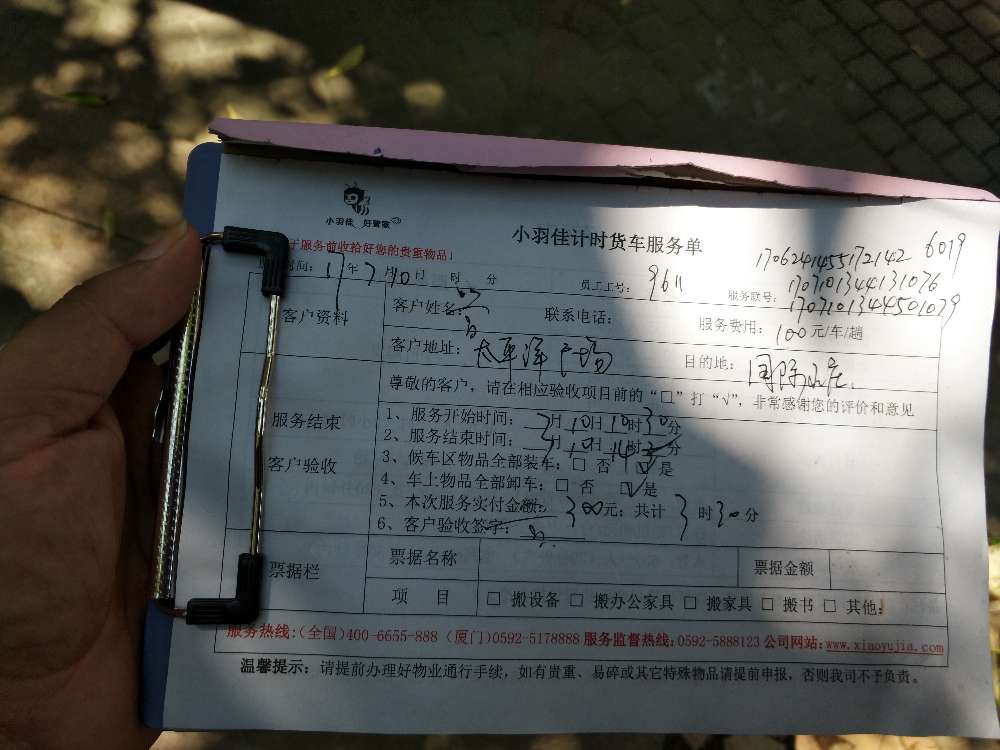 小羽佳 好管家
小羽佳计时货车服务单
于服务前收拾好您的贵重物品！
时间：17年7月10日 时 分 员工工号：9611 服务联号：1706241455172142 6019
1707101344131076
1707101344501079
客户资料 客户姓名： 联系电话： 服务费用：100元/车/趟
客户地址：太平洋广场 目的地：国际
尊敬的客户，请在相应验收项目前的“□”打“√”，非常感谢您的评价和意见
服务结束
客户验收
1、服务开始时间：7月10日10时30分
2、服务结束时间：7月10日14时 分
3、候车区物品全部装车：□ 否 ☑是
4、车上物品全部卸车：□ 否 ☑是
5、本次服务实付金额：300元；共计 3时30分
6、客户验收签字：
票据栏 票据名称 票据金额
项 目 □ 搬设备 □ 搬办公家具 □ 搬家具 □ 搬书 □ 其他：
服务热线:(全国)400-6655-888 (厦门)0592-5178888 服务监督热线:0592-5888123 公司网站:www.xiaoyujia.com
温馨提示：请提前办理好物业通行手续，如有贵重、易碎或其它特殊物品请提前申报，否则我司不予负责。